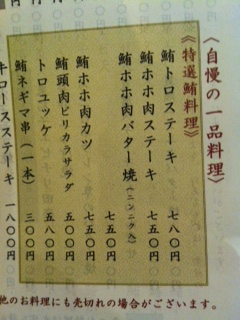 〈自慢の一品料理〉
《特選鮪料理》
鮪トロステーキ 七八〇円
鮪ホホ肉ステーキ 七五〇円
鮪ホホ肉バター焼(ニンニク入) 七五〇円
鮪ホホ肉カツ 七五〇円
鮪頭肉ピリカラサラダ 五〇〇円
トロユッケ 五八〇円
鮪ネギマ串(一本) 三〇〇円
牛ロースステーキ 一八〇〇円
他のお料理にも売切れの場合がございます。